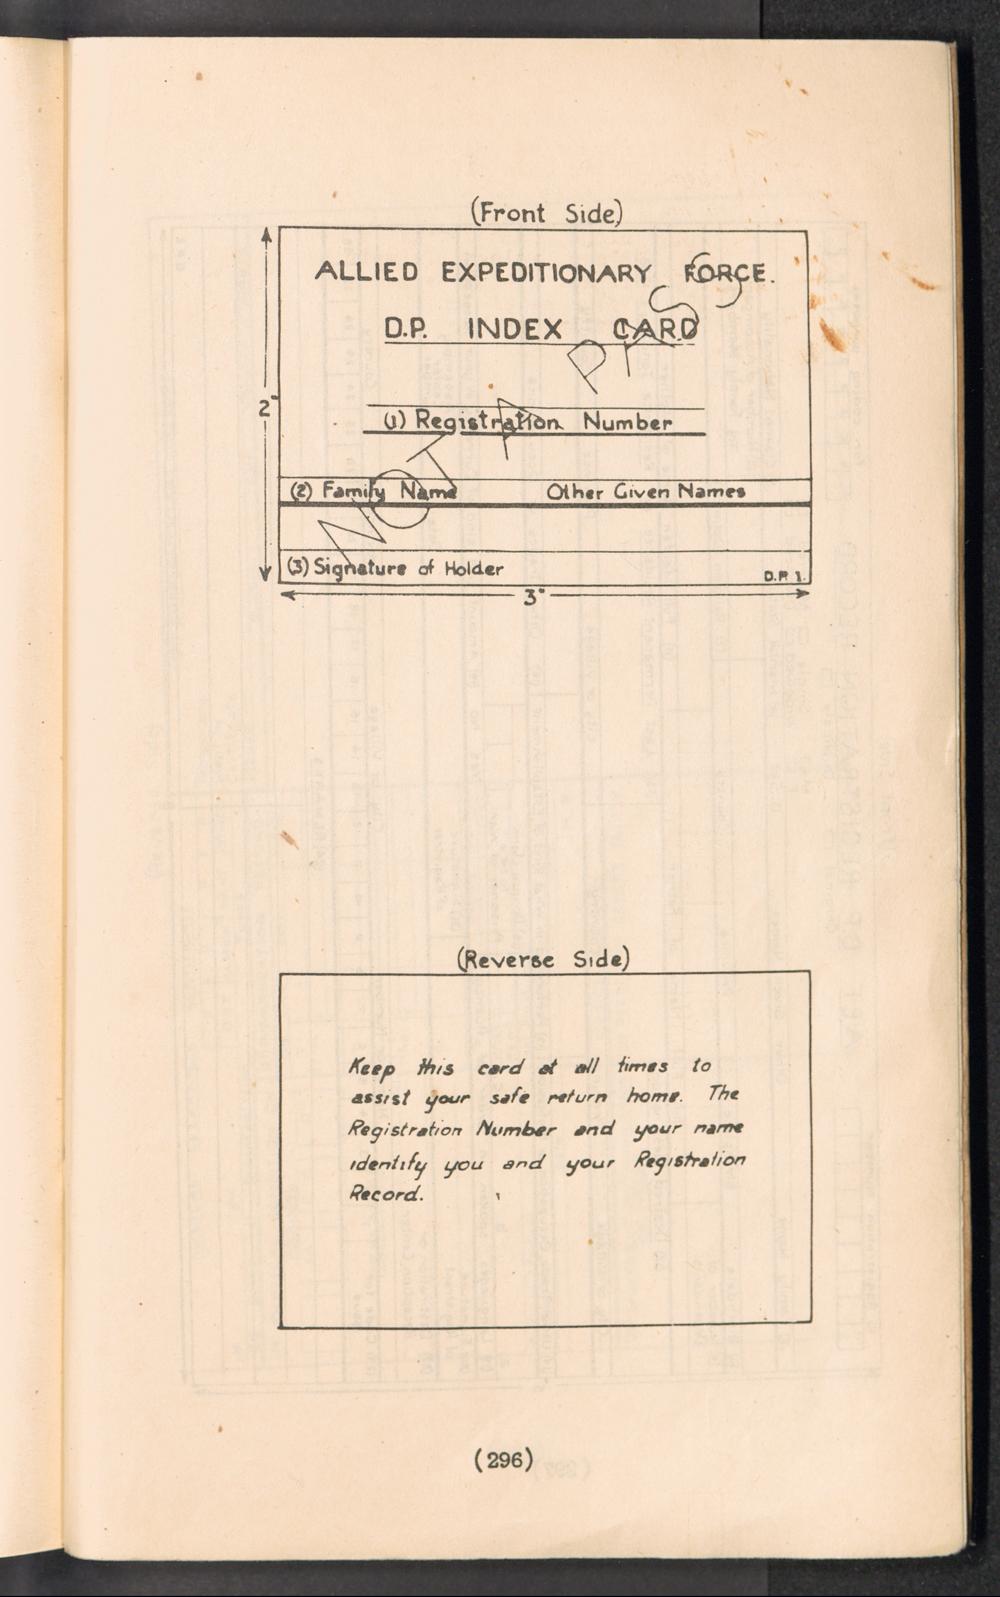 (Front Side)
ALLIED EXPEDITIONARY FORCE.
D.P. INDEX CARD
NOT A PASS
2"
(1) Registration Number
(2) Family Name Other Given Names
(3) Signature of Holder
D.P. 1.
3"
(Reverse Side)
Keep this card at all times to
assist your safe return home. The
Registration Number and your name
identify you and your Registration
Record.
(296)